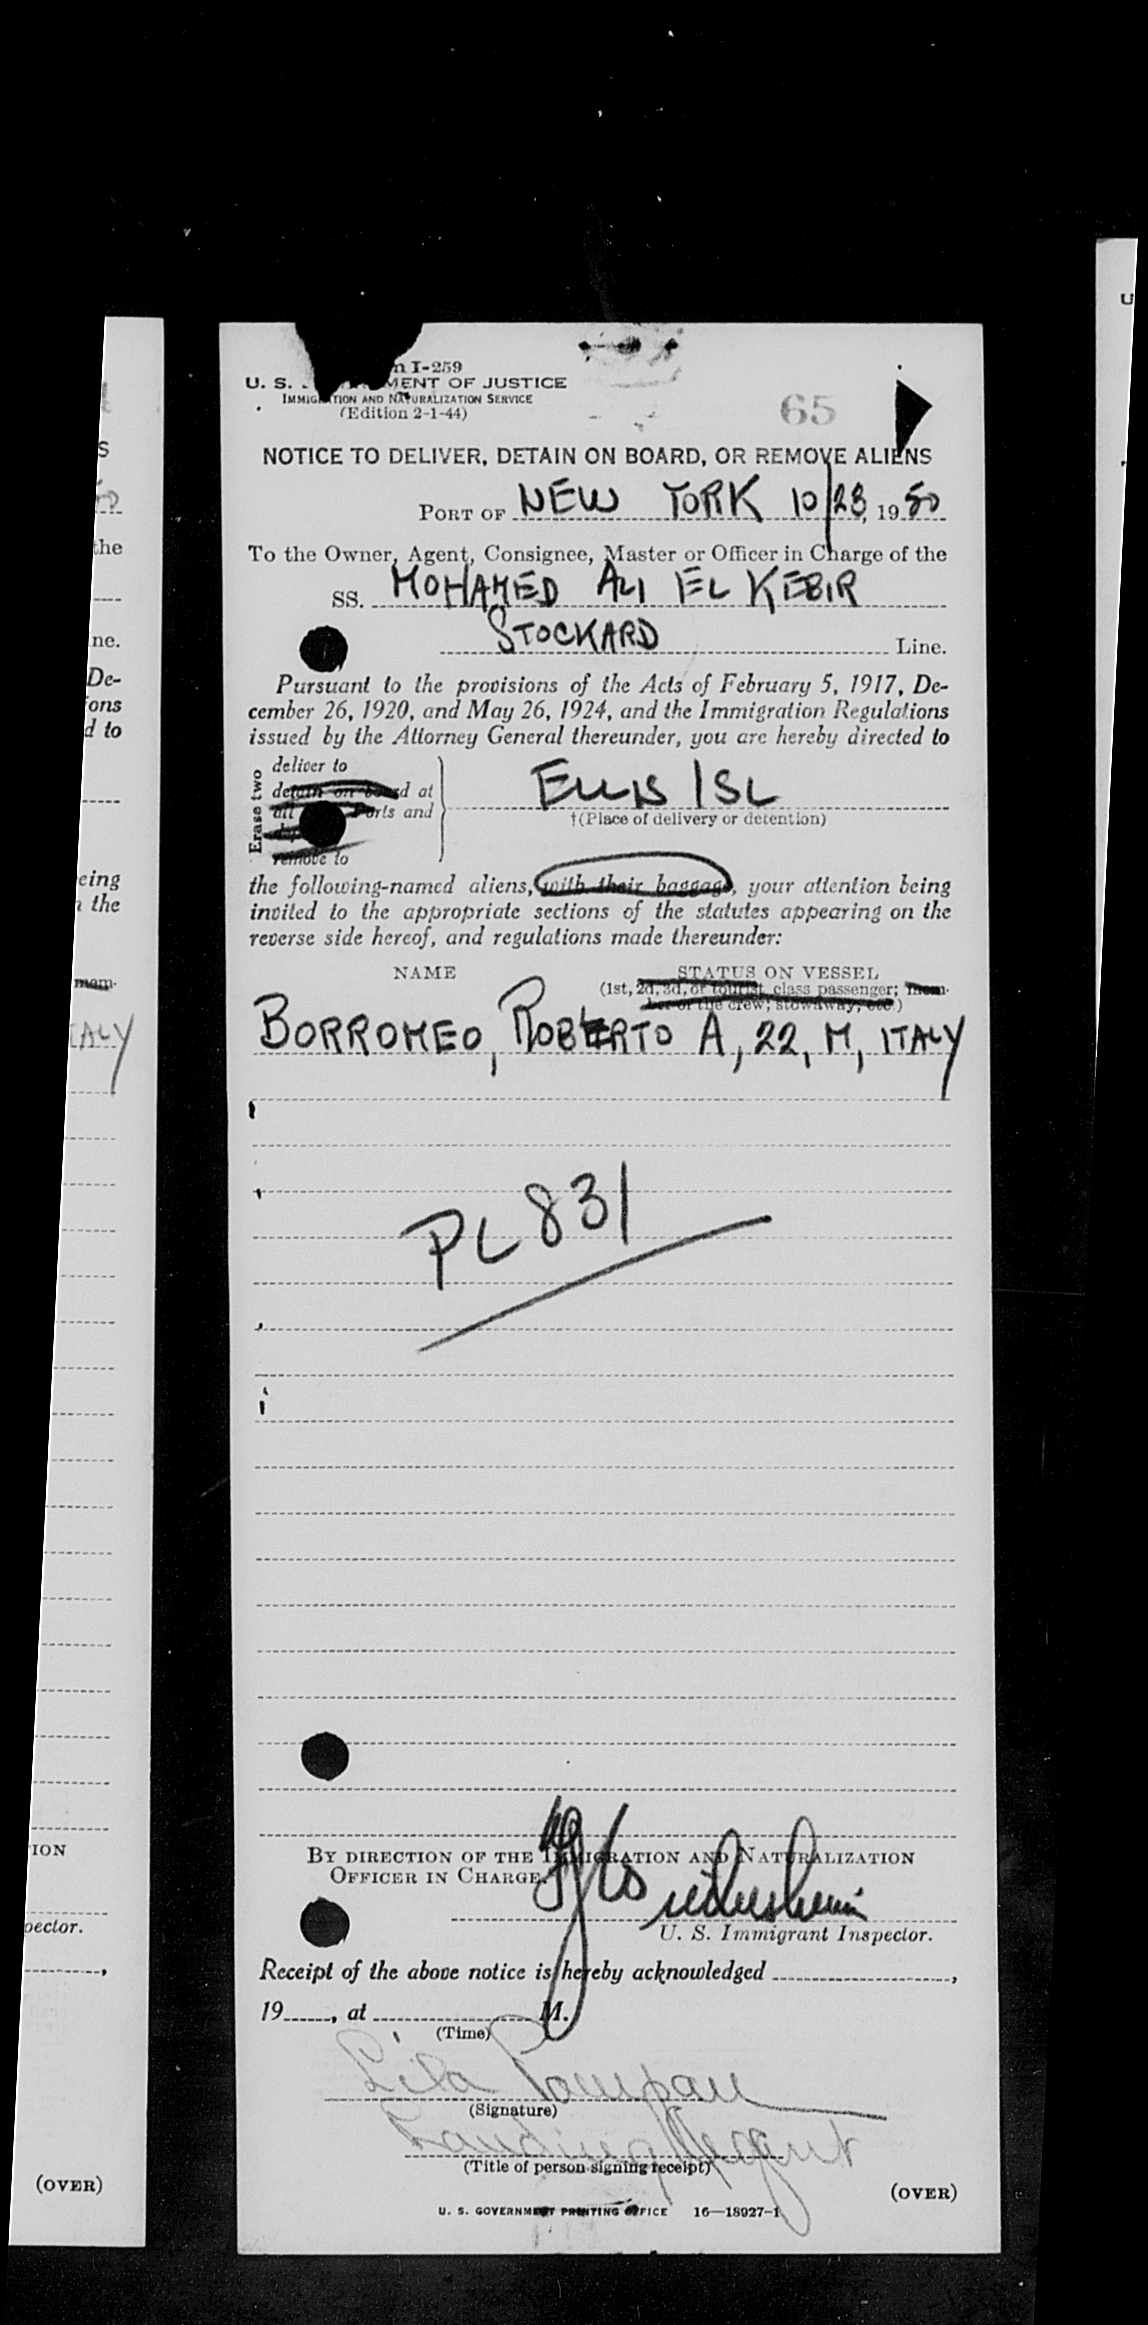 S
the
ne.
De-
ons
d to
eing
the
mem-
ITALY
ION
pector.
(OVER)
I-259
U. S. MENT OF JUSTICE
IMMIGRATION AND NATURALIZATION SERVICE
(Edition 2-1-44)
65
NOTICE TO DELIVER, DETAIN ON BOARD, OR REMOVE ALIENS
PORT OF NEW YORK 10/23, 1950
To the Owner, Agent, Consignee, Master or Officer in Charge of the
SS. MOHAMED ALI EL KEBIR
STOCKARD Line.
Pursuant to the provisions of the Acts of February 5, 1917, De-
cember 26, 1920, and May 26, 1924, and the Immigration Regulations
issued by the Attorney General thereunder, you are hereby directed to
Erase two
deliver to
detain on board at
all Ports and
remove to
ELLIS ISL
†(Place of delivery or detention)
the following-named aliens, with their baggage, your attention being
invited to the appropriate sections of the statutes appearing on the
reverse side hereof, and regulations made thereunder:
NAME STATUS ON VESSEL
(1st, 2d, 3d, or tourist class passenger; mem-
ber of the crew; stowaway, etc.)
BORROMEO, ROBERTO A, 22, M, ITALY
PL 831
BY DIRECTION OF THE IMMIGRATION AND NATURALIZATION
OFFICER IN CHARGE.
U. S. Immigrant Inspector.
Receipt of the above notice is hereby acknowledged ,
19 , at M.
(Time)
Lila
(Signature)
Landing Agent
(Title of person signing receipt)
(OVER)
U. S. GOVERNMENT PRINTING OFFICE 16—18927-1
U